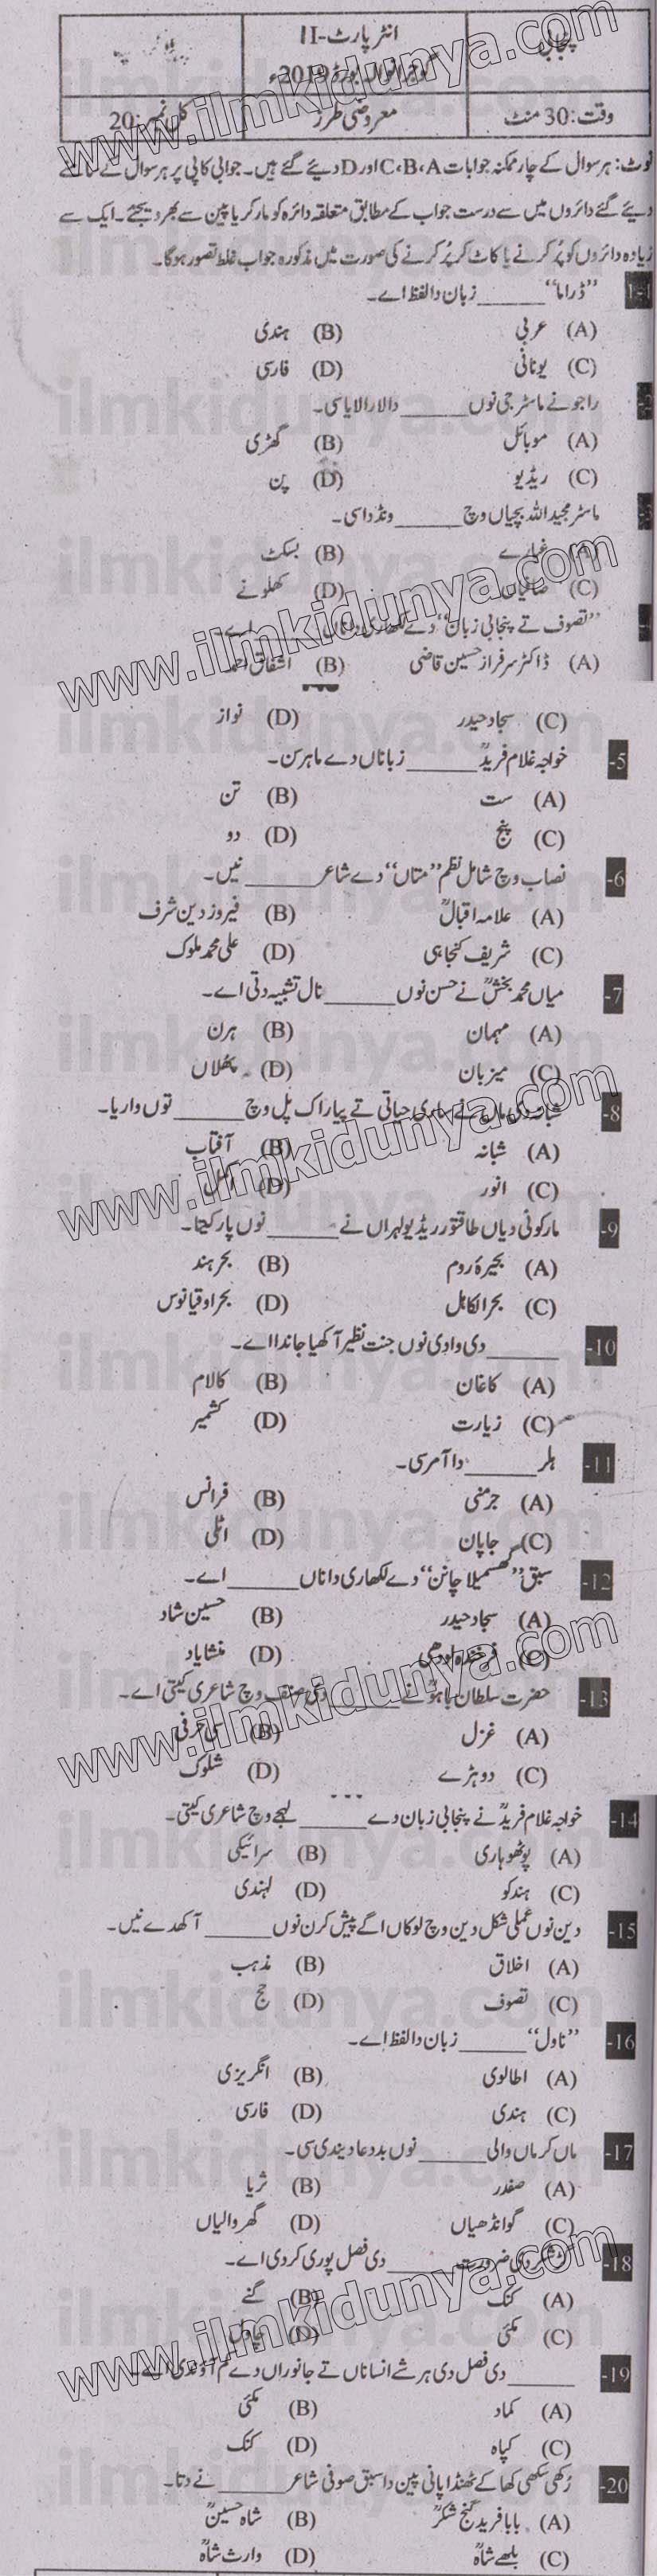 پنجابی
انٹر پارٹ-II
گوجرانوالہ بورڈ 2019ء
پہلا گروپ
وقت: 30 منٹ
معروضی طرز
کل نمبر: 20
نوٹ: ہر سوال کے چار ممکنہ جوابات C،B،A اور D دیئے گئے ہیں۔ جوابی کاپی پر ہر سوال کے سامنے
دیئے گئے دائروں میں سے درست جواب کے مطابق متعلقہ دائرہ کو مارکر یا پین سے بھر دیجئے۔ ایک سے
زیادہ دائروں کو پُر کرنے یا کاٹ کر پُر کرنے کی صورت میں مذکورہ جواب غلط تصور ہوگا۔
1-1 ”ڈراما“ ______ زبان دا لفظ اے۔
(A) عربی (B) ہندی
(C) یونانی (D) فارسی
-2 راجو نے ماسٹر جی نوں ______ دا لارا لایا سی۔
(A) موبائل (B) گھڑی
(C) ریڈیو (D) پن
-3 ماسٹر مجید اللہ بچیاں وچ ______ ونڈدا سی۔
(A) غبارے (B) بسکٹ
(C) ٹافیاں (D) کھلونے
-4 ”تصوف تے پنجابی زبان“ دے لکھاری دا ناں ______ اے۔
(A) ڈاکٹر سرفراز حسین قاضی (B) اشفاق احمد
(C) سجاد حیدر (D) نواز
-5 خواجہ غلام فریدؒ ______ زباناں دے ماہر سن۔
(A) ست (B) تن
(C) پنج (D) دو
-6 نصاب وچ شامل نظم ”متاں“ دے شاعر ______ نیں۔
(A) علامہ اقبالؒ (B) فیروز دین شرف
(C) شریف کنجاہی (D) علی محمد ملوک
-7 میاں محمد بخشؒ نے حسن نوں ______ نال تشبیہ دتی اے۔
(A) مہمان (B) ہرن
(C) میزبان (D) پھلاں
-8 شبانہ دی ماں نے ساری حیاتی تے پیار اک پل وچ ______ توں واریا۔
(A) شبانہ (B) آفتاب
(C) انور (D) اکمل
-9 مارکونی دیاں طاقتور ریڈیو لہراں نے ______ نوں پار کیتا۔
(A) بحیرۂ روم (B) بحر ہند
(C) بحر الکاہل (D) بحر اوقیانوس
-10 ______ دی وادی نوں جنت نظیر آکھیا جاندا اے۔
(A) کاغان (B) کالام
(C) زیارت (D) کشمیر
-11 ہلر ______ دا آمر سی۔
(A) جرمنی (B) فرانس
(C) جاپان (D) اٹلی
-12 سبق ”گھسمیلا چانن“ دے لکھاری دا ناں ______ اے۔
(A) سجاد حیدر (B) حسین شاد
(C) فرخندہ لودھی (D) منشا یاد
-13 حضرت سلطان باہوؒ نے ______ دی صنف وچ شاعری کیتی اے۔
(A) غزل (B) سی حرفی
(C) دوہڑے (D) شلوک
-14 خواجہ غلام فریدؒ نے پنجابی زبان دے ______ لہجے وچ شاعری کیتی۔
(A) پوٹھوہاری (B) سرائیکی
(C) ہندکو (D) لہندی
-15 دین نوں عملی شکل دین وچ لوکاں اگے پیش کرن نوں ______ آکھدے نیں۔
(A) اخلاق (B) مذہب
(C) تصوف (D) حج
-16 ”ناول“ ______ زبان دا لفظ اے۔
(A) اطالوی (B) انگریزی
(C) ہندی (D) فارسی
-17 ماں کرماں والی ______ نوں بددعا دیندی سی۔
(A) صفدر (B) ثریا
(C) گوانڈھیاں (D) گھر والیاں
-18 شکر دی ضرورت ______ دی فصل پوری کردی اے۔
(A) کنک (B) گنے
(C) مکئی (D) چاول
-19 ______ دی فصل دی ہر شے انساناں تے جانوراں دے کم آوندی اے۔
(A) کماد (B) مکئی
(C) کپاہ (D) کنک
-20 رُکھی سُکھی کھا کے ٹھنڈا پانی پین دا سبق صوفی شاعر ______ نے دتا۔
(A) بابا فرید گنج شکرؒ (B) شاہ حسینؒ
(C) بلھے شاہؒ (D) وارث شاہؒ
www.ilmkidunya.com
www.ilmkidunya.com
www.ilmkidunya.com
www.ilmkidunya.com
www.ilmkidunya.com